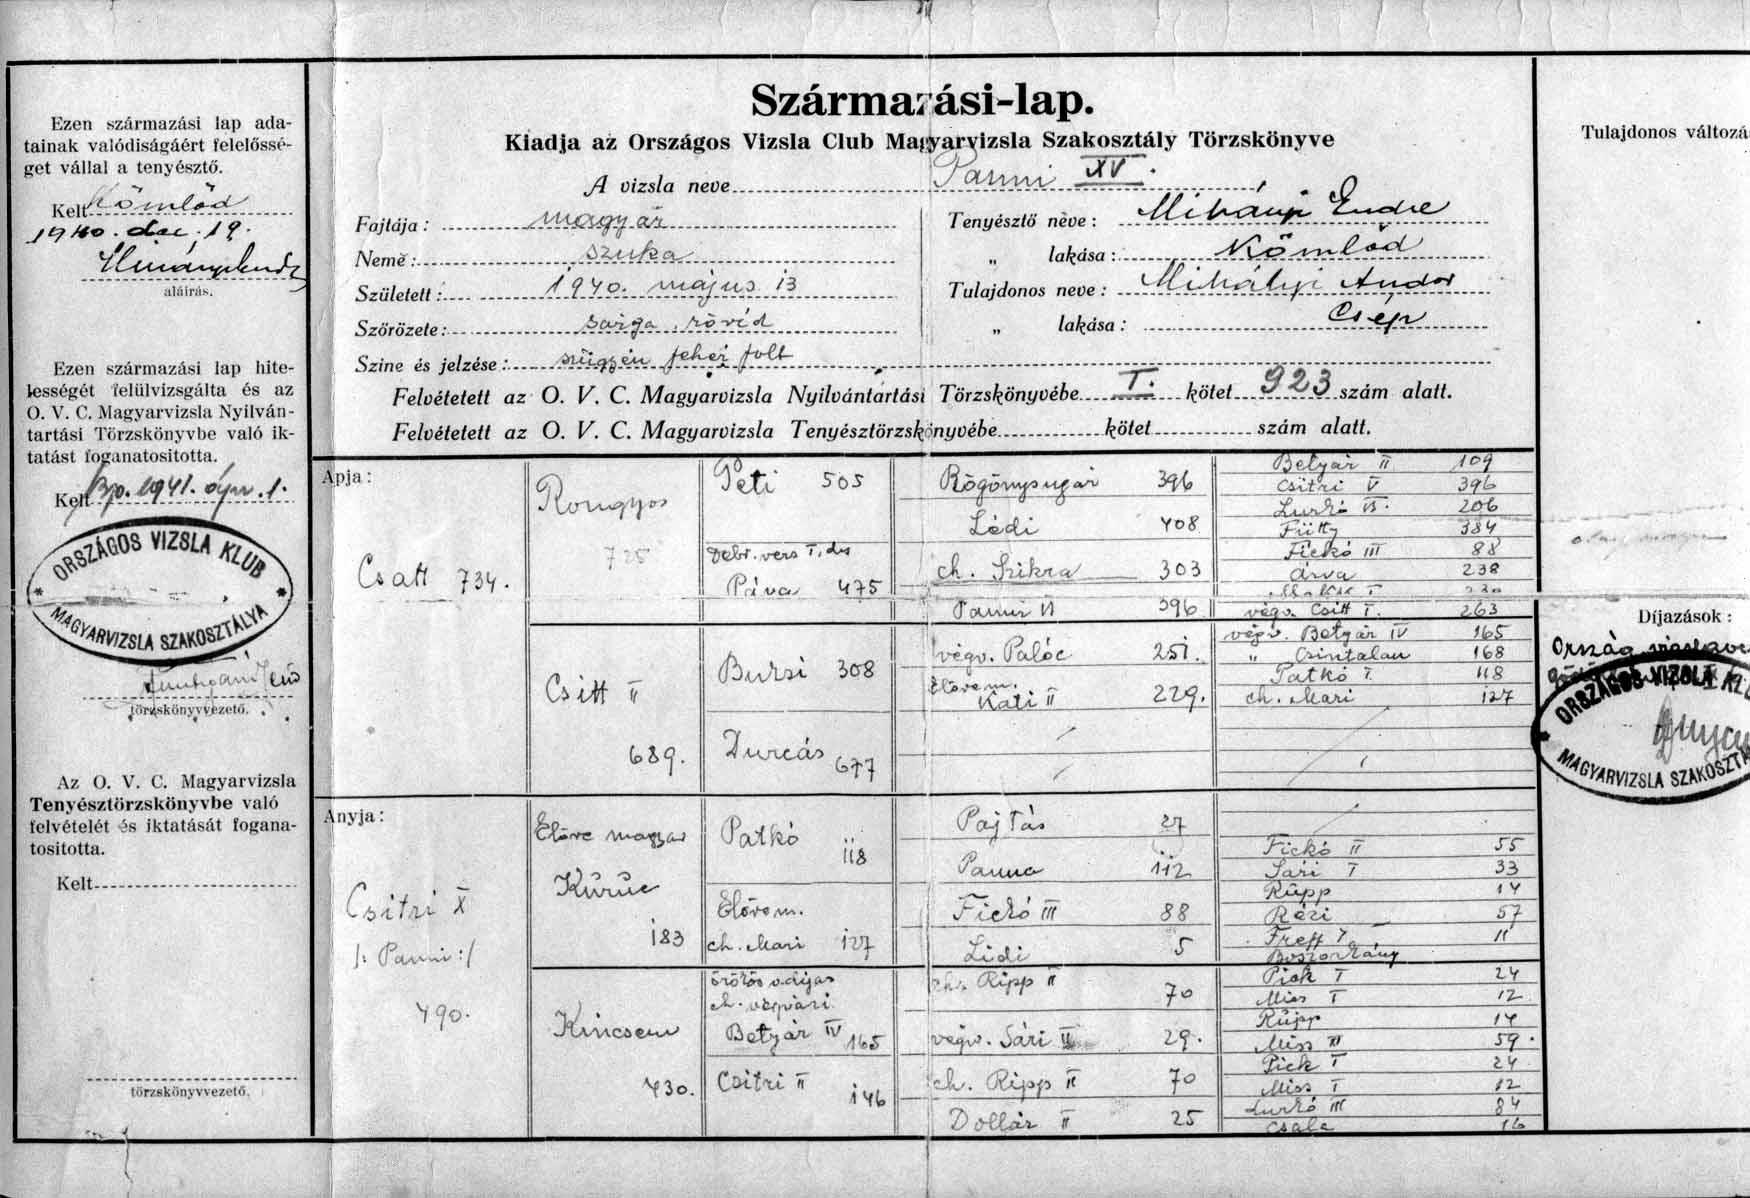 Ezen származási lap ada-
tainak valódiságáért felelőssé-
get vállal a tenyésztő.
Kelt Kömlőd
1940. dec. 19.
aláírás.
Ezen származási lap hite-
lességét felülvizsgálta és az
O. V. C. Magyarvizsla Nyilván-
tartási Törzskönyvbe való ik-
tatást foganatositotta.
Kelt Bp. 1941. ápr. 1.
ORSZÁGOS VIZSLA KLUB
* *
MAGYARVIZSLA SZAKOSZTÁLYA
törzskönyvvezető.
Az O. V. C. Magyarvizsla
Tenyésztörzskönyvbe való
felvételét és iktatását fogana-
tositotta.
Kelt
törzskönyvvezető.
Származási-lap.
Kiadja az Országos Vizsla Club Magyarvizsla Szakosztály Törzskönyve
A vizsla neve Panni XV.
Fajtája: magyar
Neme: szuka
Született: 1940. május 13
Szőrözete: sárga, rövid
Szine és jelzése: szügyén fehér folt
Tenyésztő neve: Mihályi Endre
„ lakása: Kömlőd
Tulajdonos neve: Mihályi Andor
„ lakása: Csép
Felvétetett az O. V. C. Magyarvizsla Nyilvántartási Törzskönyvébe I. kötet 923 szám alatt.
Felvétetett az O. V. C. Magyarvizsla Tenyésztörzskönyvébe kötet szám alatt.
Apja:
Csatt 734.
Rongyos
725
Csitt II
689.
Peti 505
Debr. vers I. dij
Páva 475
Bursi 308
Durcás 677
Rögönysugár 396
Lédi 408
ch. Szikra 303
Panni VI 396
végv. Palóc 251.
Elővem.
Kati II 229.
Betyár II 109
Csitri V 396
Lurkó VI. 206
Fütty 384
Fickó III 88
Árva 238
végv. Csitt I. 263
végv. Betyár IV 165
„ Csintalan 168
Patkó I. 118
ch. Mari 127
Anyja:
Csitri X
/: Panni :/
490.
Előve magyar
Kuruc
183
Kincsem
430.
Patkó 118
Elővem.
ch. Mari 127
örökös v. dijas
ch. végvári
Betyár IV 165
Csitri II 146
Pajtás 27
Panna 112
Fickó III 88
Lidi 5
ch. Ripp II 70
végv. Sári II 29.
ch. Ripp II 70
Dollár II 25
Fickó II 55
Sári I 33
Rüpp 14
Rézi 57
Treff I. 11
Boszorkány
Pick I 24
Miss I 12
Rüpp 14
Miss VI 59.
Pick I 24
Miss I 12
Lurkó III 84
Csala 16
Tulajdonos változá
Díjazások:
Ország
ORSZÁGOS VIZSLA KLU
*
MAGYARVIZSLA SZAKOSZTÁ